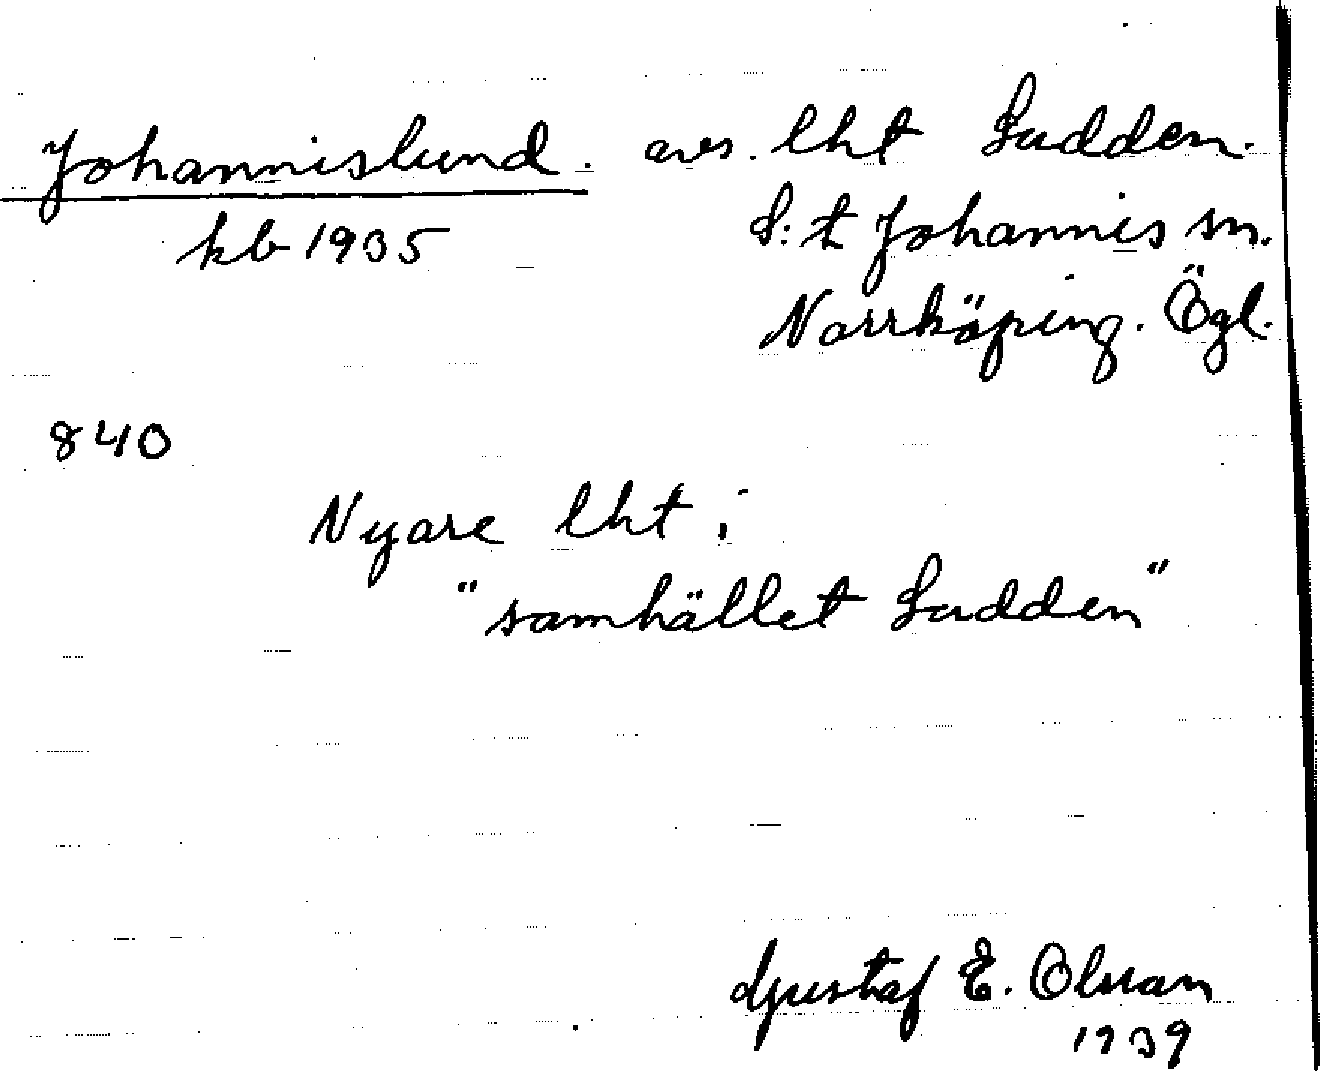 Johannislund. avs. lht Sadden.
kb 1935 S:t Johannis sn.
Norrköping. Ögl.
840
Nyare lht i
"samhället Sadden"
Gustaf E. Olsson
1939